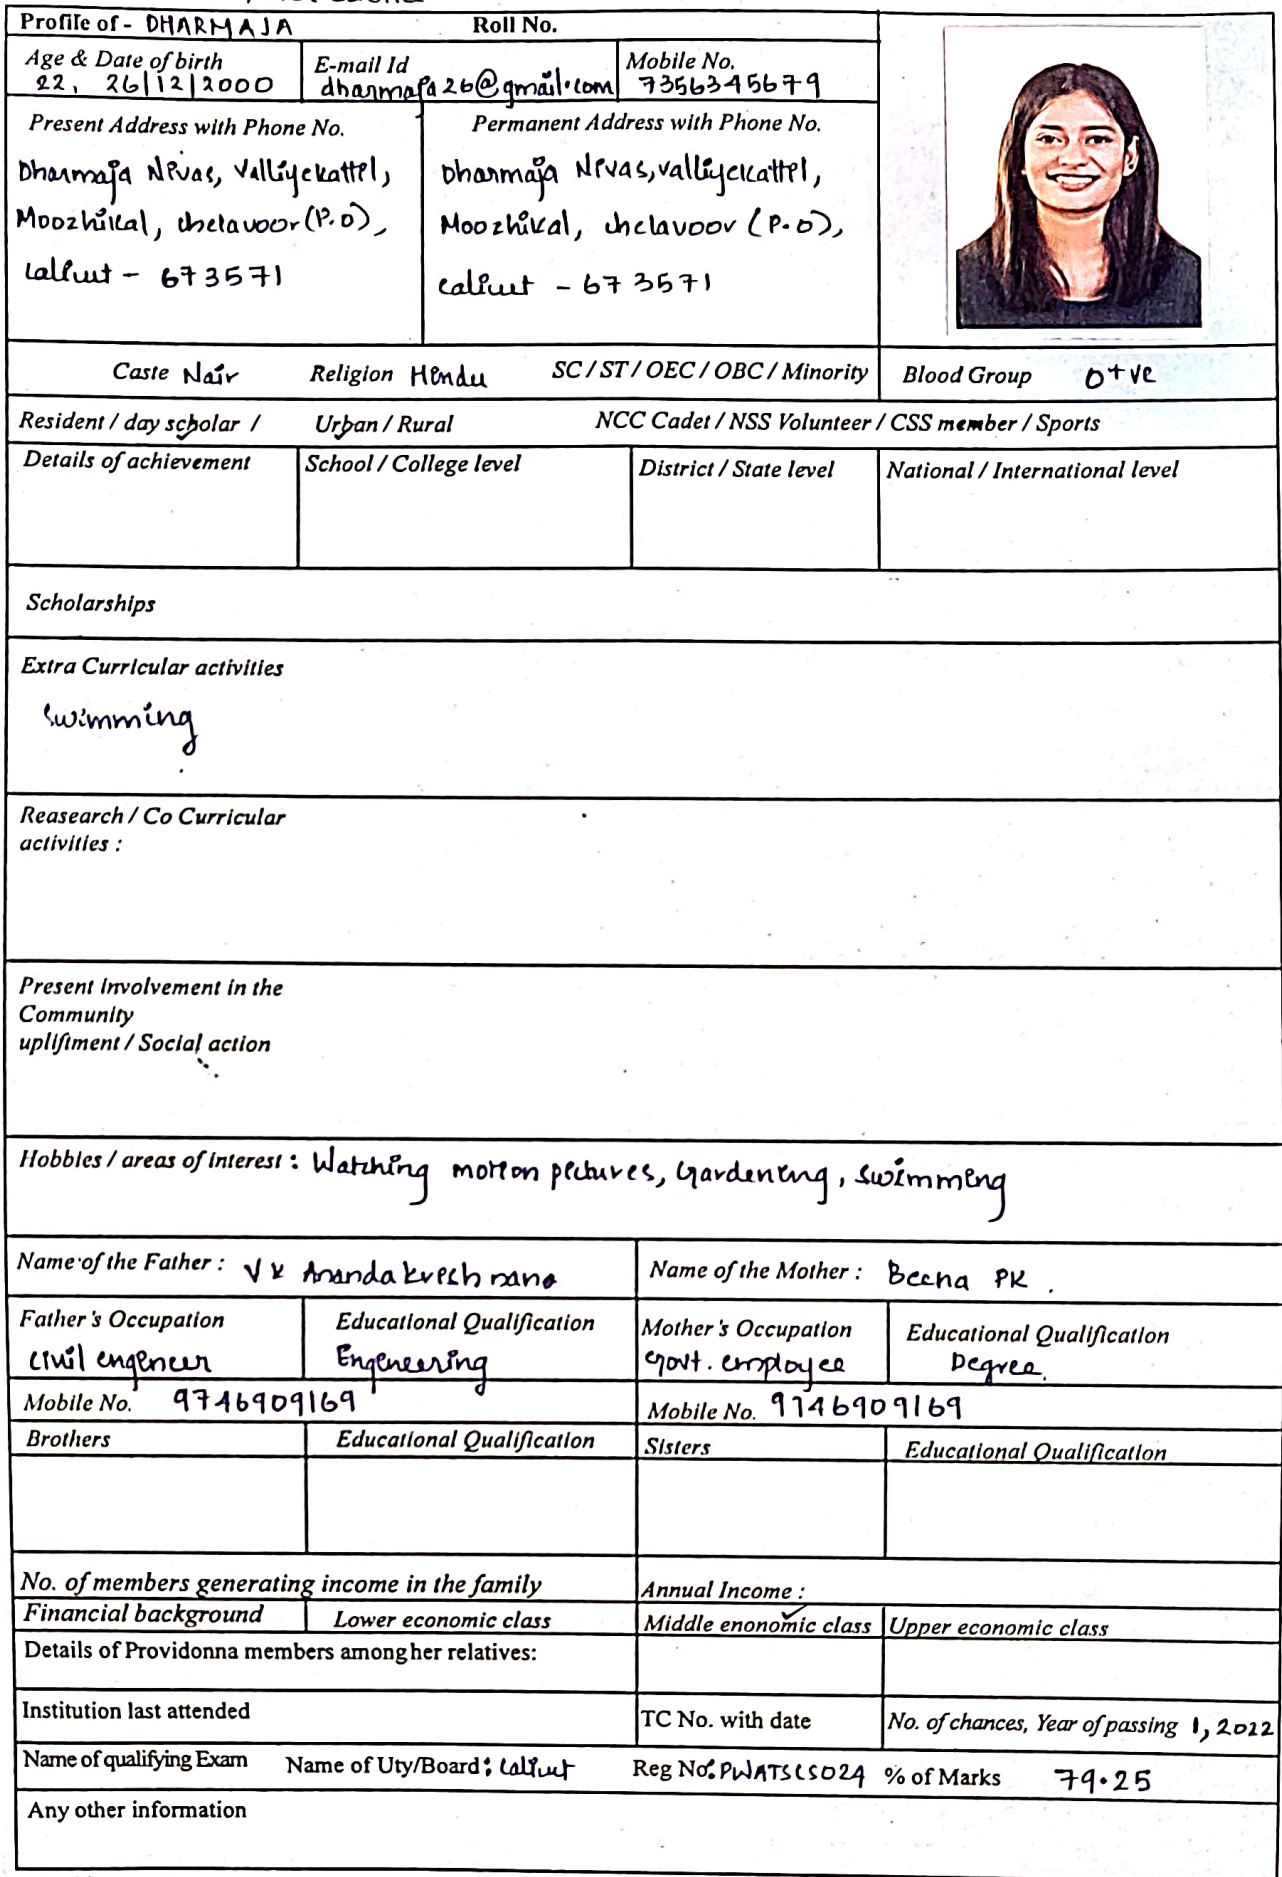 Profile of - DHARMAJA Roll No.
Age & Date of birth E-mail Id Mobile No.
22, 26/12/2000 dharmaja26@gmail.com 7356345679
Present Address with Phone No. Permanent Address with Phone No.
Dharmaja Nivas, Valliyekattil, Dharmaja Nivas, valliyekattil,
Moozhikal, chelavoor (P.O), Moozhikal, chelavoor (P.O),
calicut - 673571 calicut - 673571
Caste Nair Religion Hindu SC / ST / OEC / OBC / Minority Blood Group O+ve
Resident / day scholar / Urban / Rural NCC Cadet / NSS Volunteer / CSS member / Sports
Details of achievement School / College level District / State level National / International level
Scholarships
Extra Curricular activities
Swimming
Reasearch / Co Curricular
activities :
Present involvement in the
Community
upliftment / Social action
Hobbies / areas of interest : Watching motion pictures, Gardening, swimming
Name of the Father : V K Anandakrishnana Name of the Mother : Beena PK .
Father's Occupation Educational Qualification Mother's Occupation Educational Qualification
civil engineer Engineering Govt. employee Degree.
Mobile No. 9746909169 Mobile No. 9746909169
Brothers Educational Qualification Sisters Educational Qualification
No. of members generating income in the family Annual Income :
Financial background Lower economic class Middle enonomic class Upper economic class
Details of Providonna members among her relatives:
Institution last attended TC No. with date No. of chances, Year of passing 1, 2022
Name of qualifying Exam Name of Uty/Board : Calicut Reg No: PWATSCS024 % of Marks 79.25
Any other information